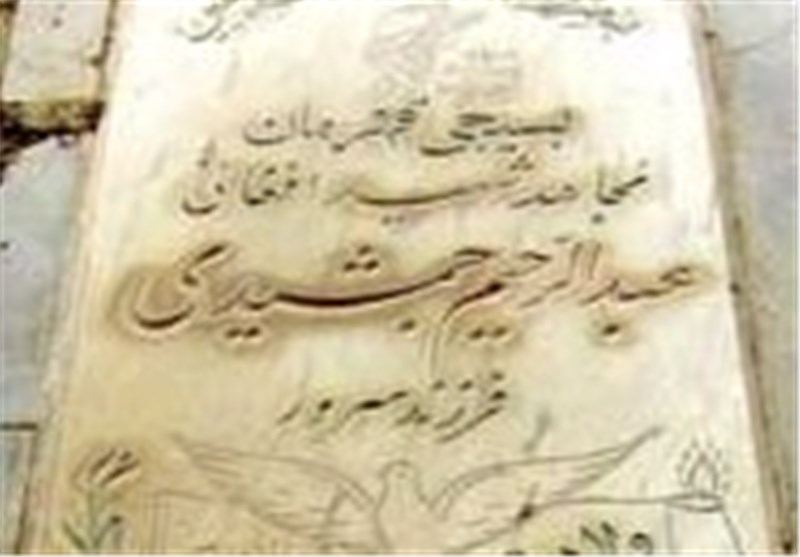 بسیجی قهرمان
مجاهد شهید افغانی
عبدالرحیم جمشیدی
فرزند سرور